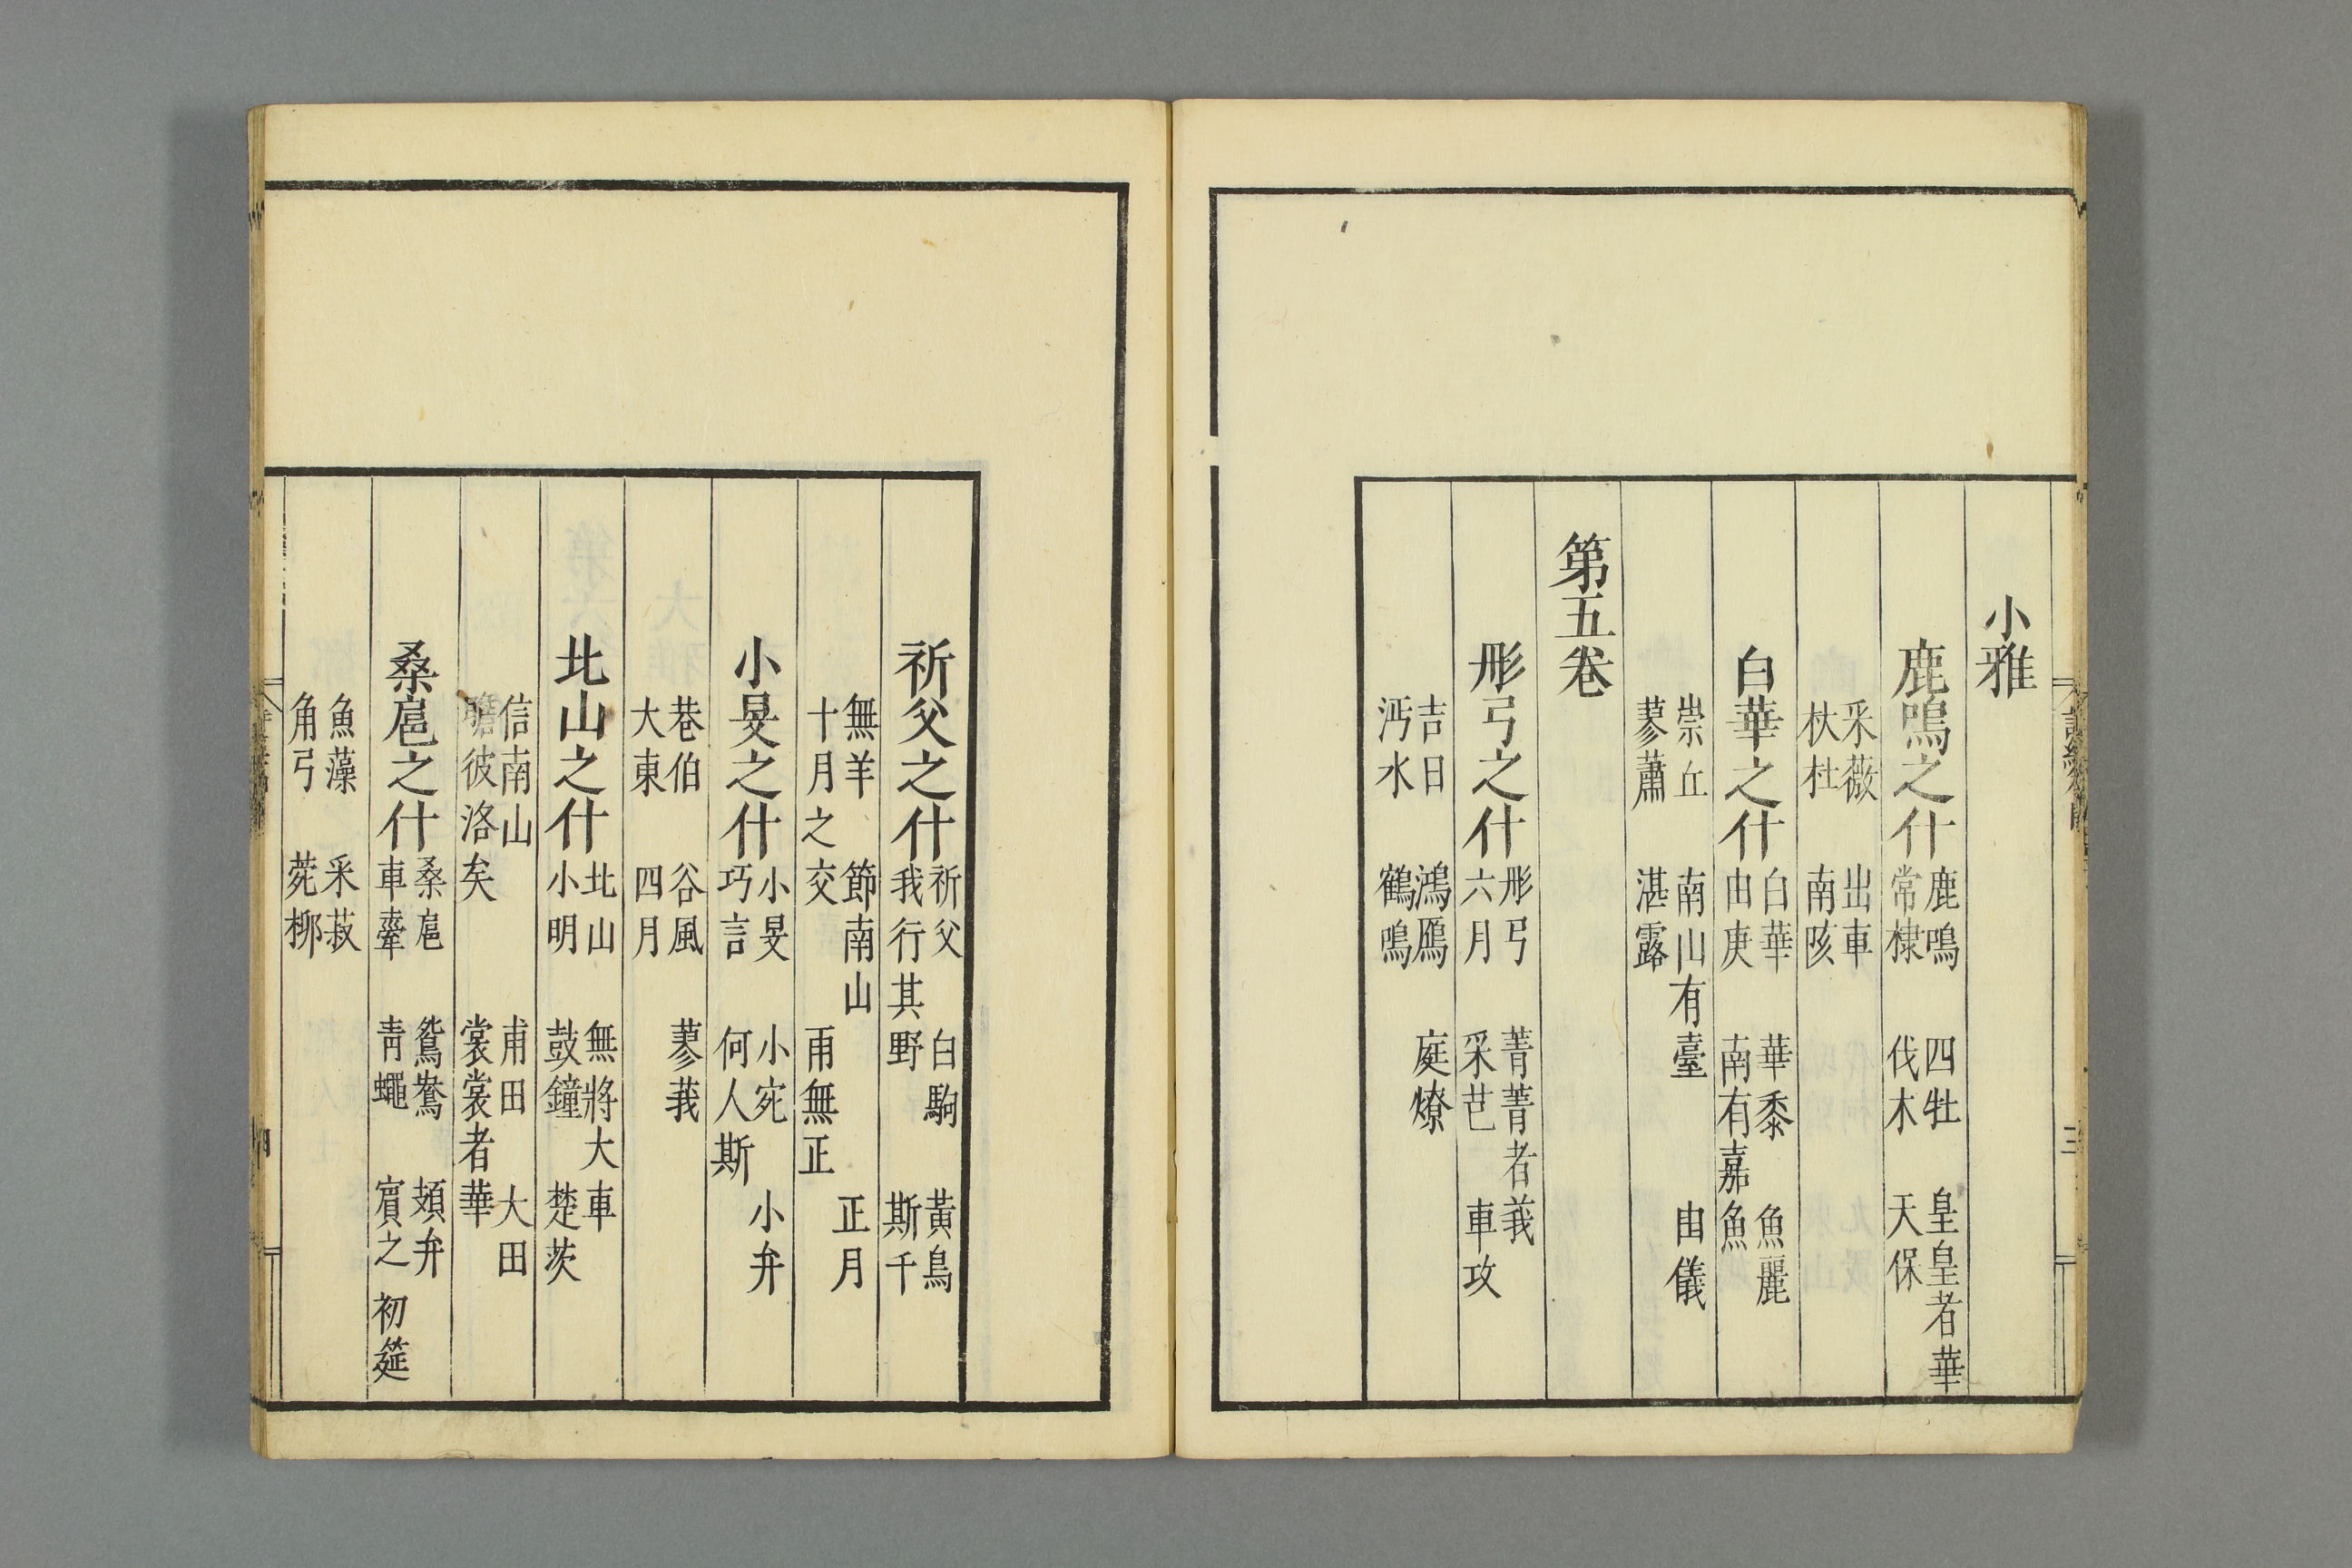 小雅
鹿鳴之什 鹿鳴 四牡 皇皇者華
常棣 伐木 天保
采薇 出車
杕杜 南陔
白華之什 白華 華黍 魚麗
由庚 南有嘉魚
崇丘 南山有臺 由儀
蓼蕭 湛露
第五卷
彤弓之什 彤弓 菁菁者莪
六月 采芑 車攻
吉日 鴻鴈 庭燎
沔水 鶴鳴
祈父之什 祈父 白駒 黃鳥
我行其野 斯干
無羊 節南山 正月
十月之交 雨無正
小旻之什 小旻 小宛 小弁
巧言 何人斯
巷伯 谷風 蓼莪
大東 四月
北山之什 北山 無將大車
小明 鼓鐘 楚茨
信南山 甫田 大田
瞻彼洛矣 裳裳者華
桑扈之什 桑扈 鴛鴦 頍弁
車舝 靑蠅 賔之初筵
魚藻 采菽
角弓 菀柳